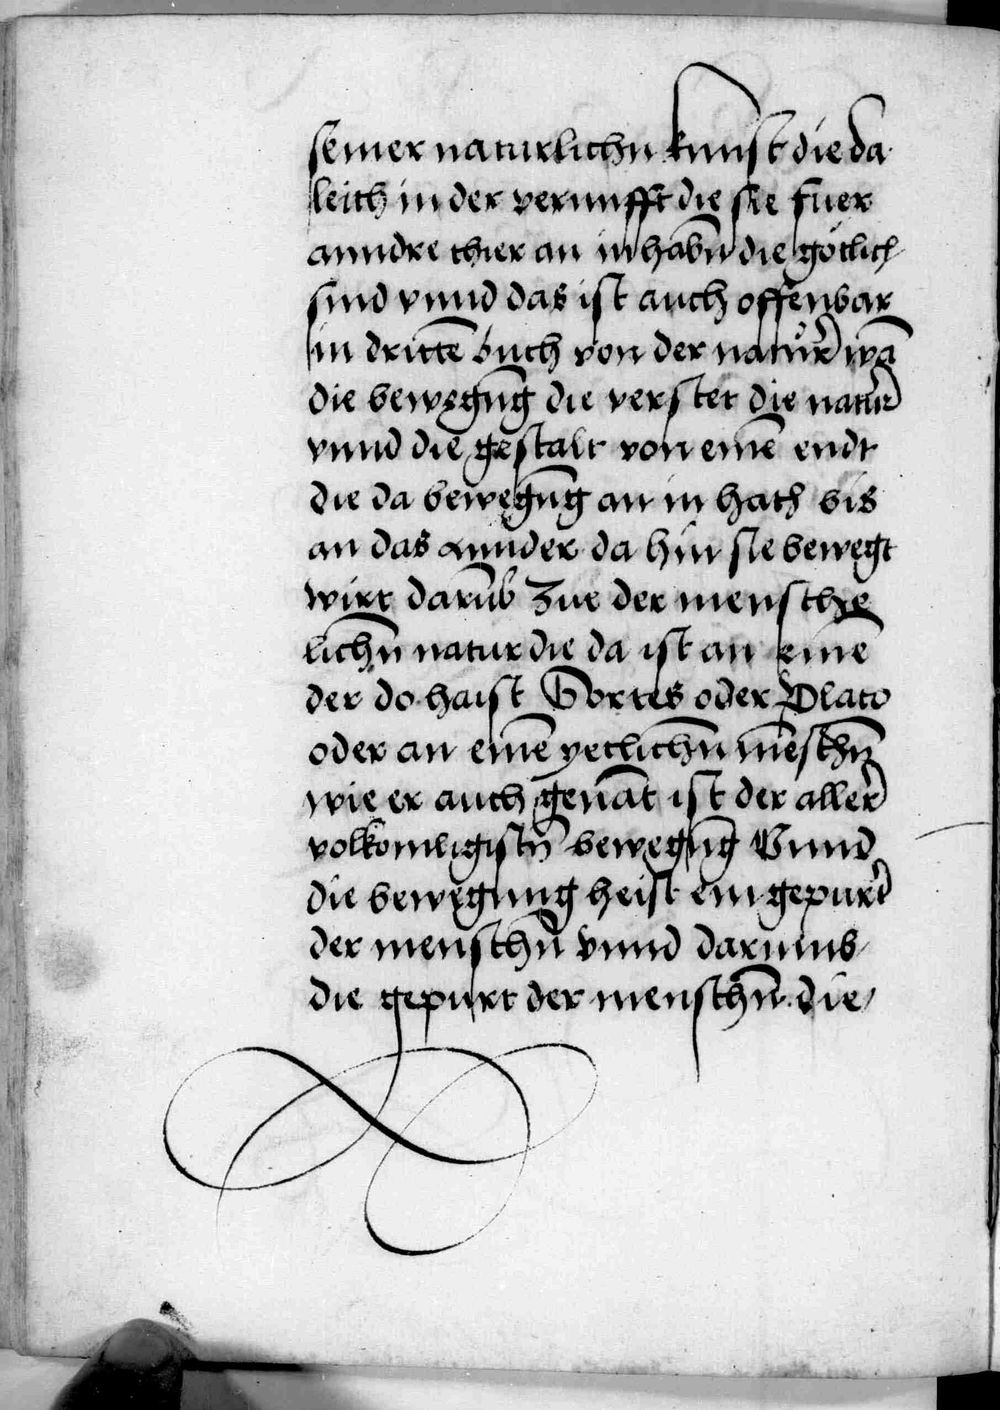 seiner naturlichn kunst die da
leich in der vernufft die sie fuer
anndre thier an in habn̄ die gotlich
sind vnnd das ist auch offenbar
in dritte͞ buch von der natur wā
die bewegūg die verstet die natur
vnnd die gestalt von eine͞ endt
die da bewegūg an in hath bis
an das annder da hin sie bewegt
wirt darūb zue der mensche
lichn̄ natur die da ist an eine͞
der do haist Sortes oder Plato
oder an eine͞ yetlichn̄ me͞schn̄
wie er auch genāt ist der aller
volkomligistn̄ bewegūg Vnnd
die bewegung heist ein gepurt
der menschn̄ vnnd darumb
die gepurt der menschn̄ die